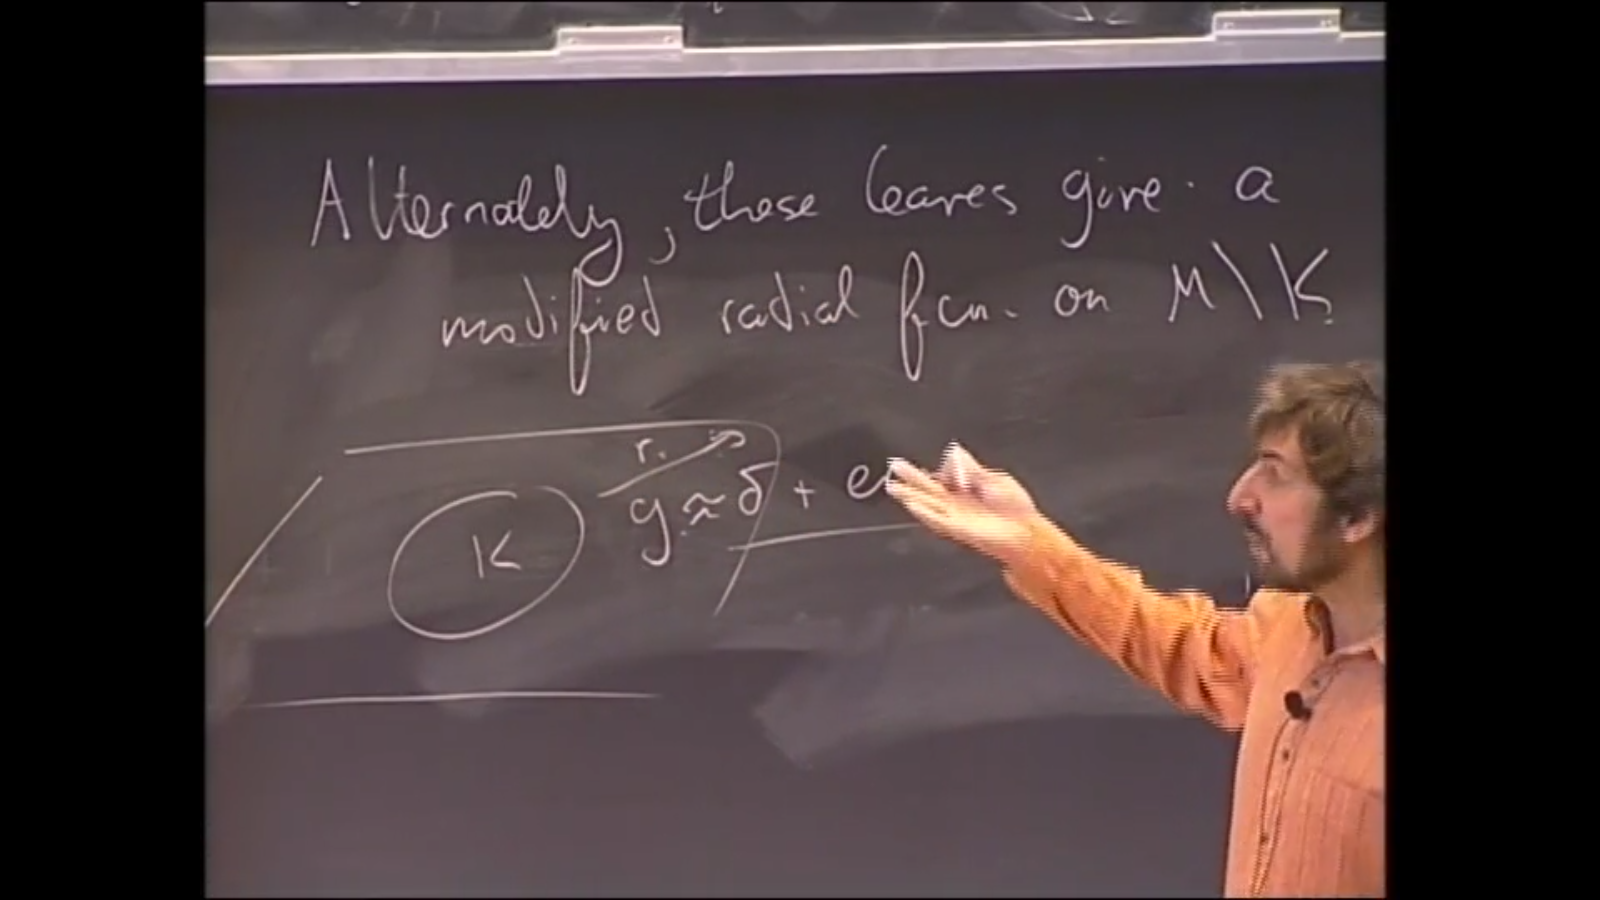 Alternately, these leaves give a
modified radial fcn. on M \ K
r.
g ≈ δ + e
K